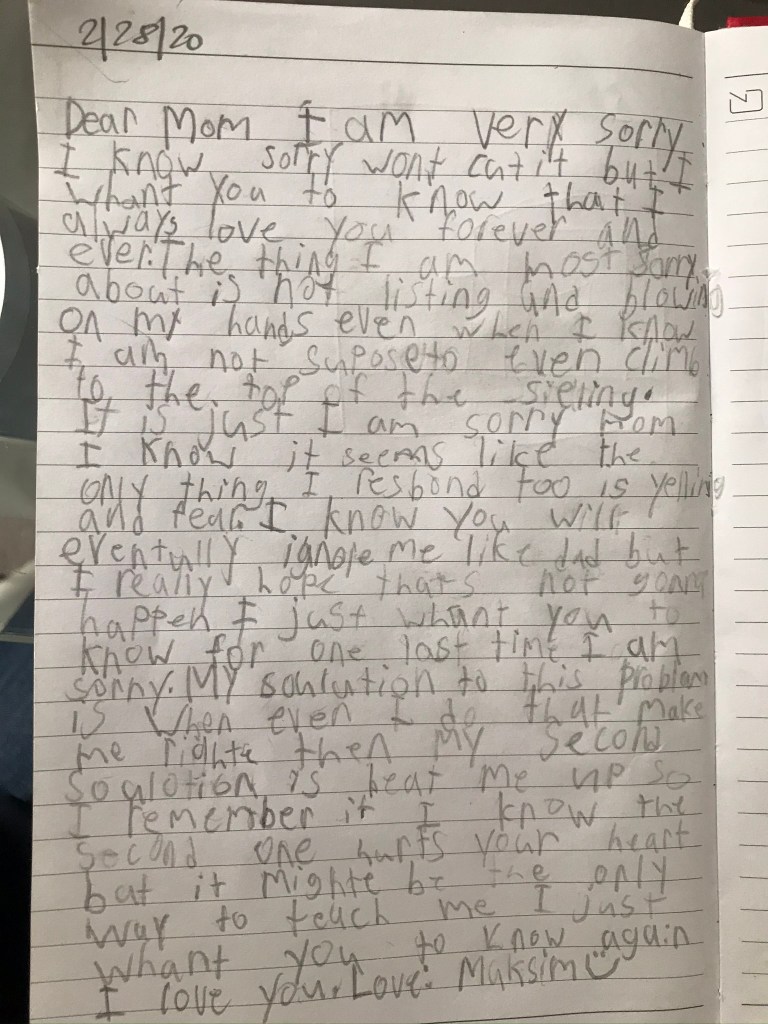 2/28/20
Dear Mom I am very sorry.
I know sorry wont cut it but I
whant you to know that I
always love you forever and
ever. The thing I am most sorry
about is not listing and blowing
on my hands even when I know
I am not suposeto even climb
to the top of the sieling.
It is just I am sorry mom
I know it seems like the
only thing I resbond too is yelling
and fear. I know you will
eventully ignore me like dad but
I really hope thats not gonna
happen I just whant you to
know for one last time I am
sorry. My soulution to this problam
is when even I do that make
me righte then my second
soulotion is beat me up so
I remember it I know the
second one hurts your heart
but it mighte be the only
way to teach me I just
whant you to know again
I love you. Love: Maksim